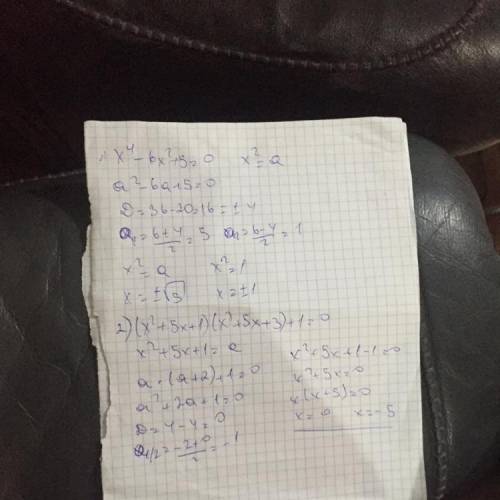 x⁴-6x²+5=0 x²=a
a²-6a+5=0
D=36-20=16=±4
a₁=6+4/2=5 a₂=6-4/2=1
x²=a x²=1
x=±√5 x=±1
2) (x²+5x+1)(x²+5x+3)+1=0
x²+5x+1=a x²+5x+1-1=0
a·(a+2)+1=0 x²+5x=0
a²+2a+1=0 x(x+5)=0
D=4-4=0 x=0 x=-5
a1/2=-2+0/2=-1